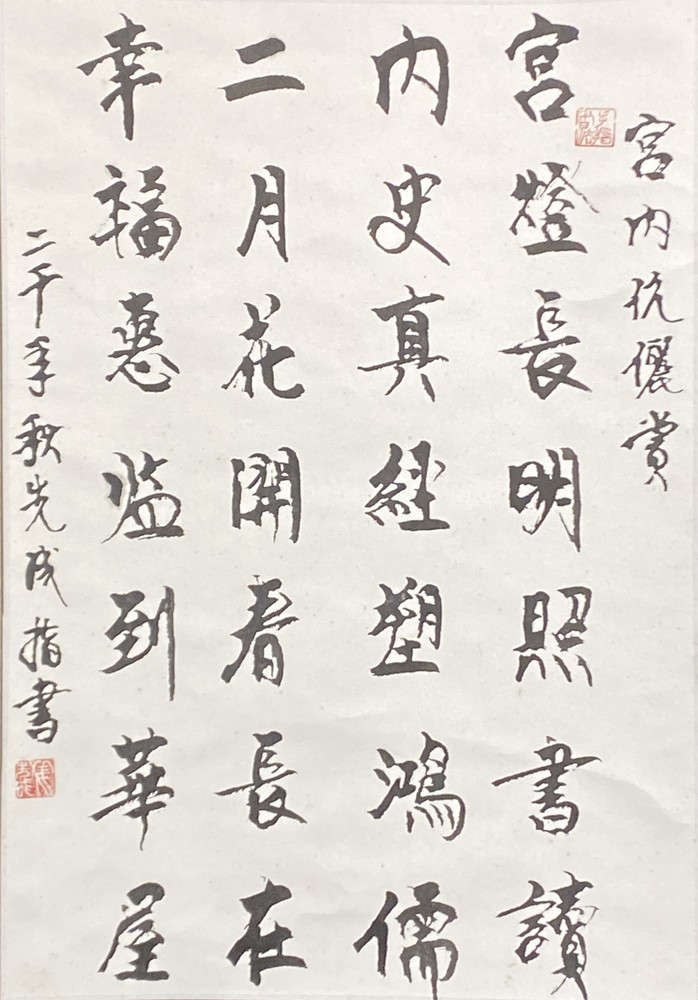 宮内伉儷賞
宮燈長明照書讀
内史真經塑鴻儒
二月花開看長在
幸福惠臨到華屋
二千年秋先成指書